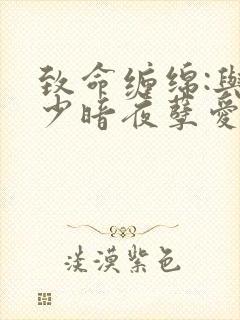 致命缠绵:与
少暗夜孽爱
淡漠紫色